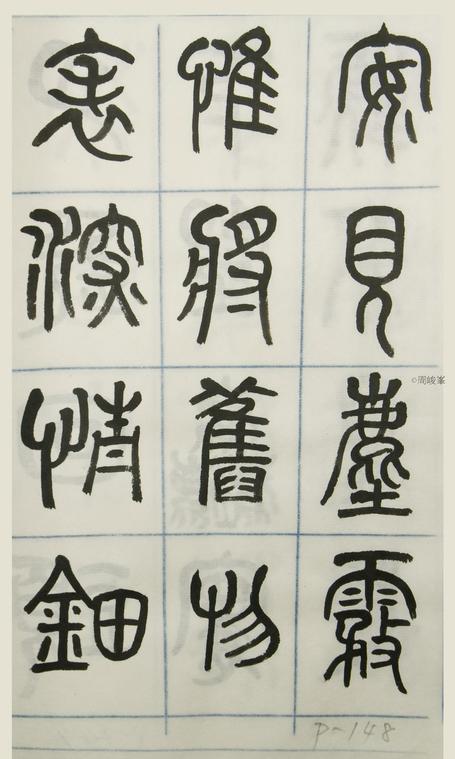 安見塵霧
惟將舊物
表深情鈿
P-148
©周峻峯